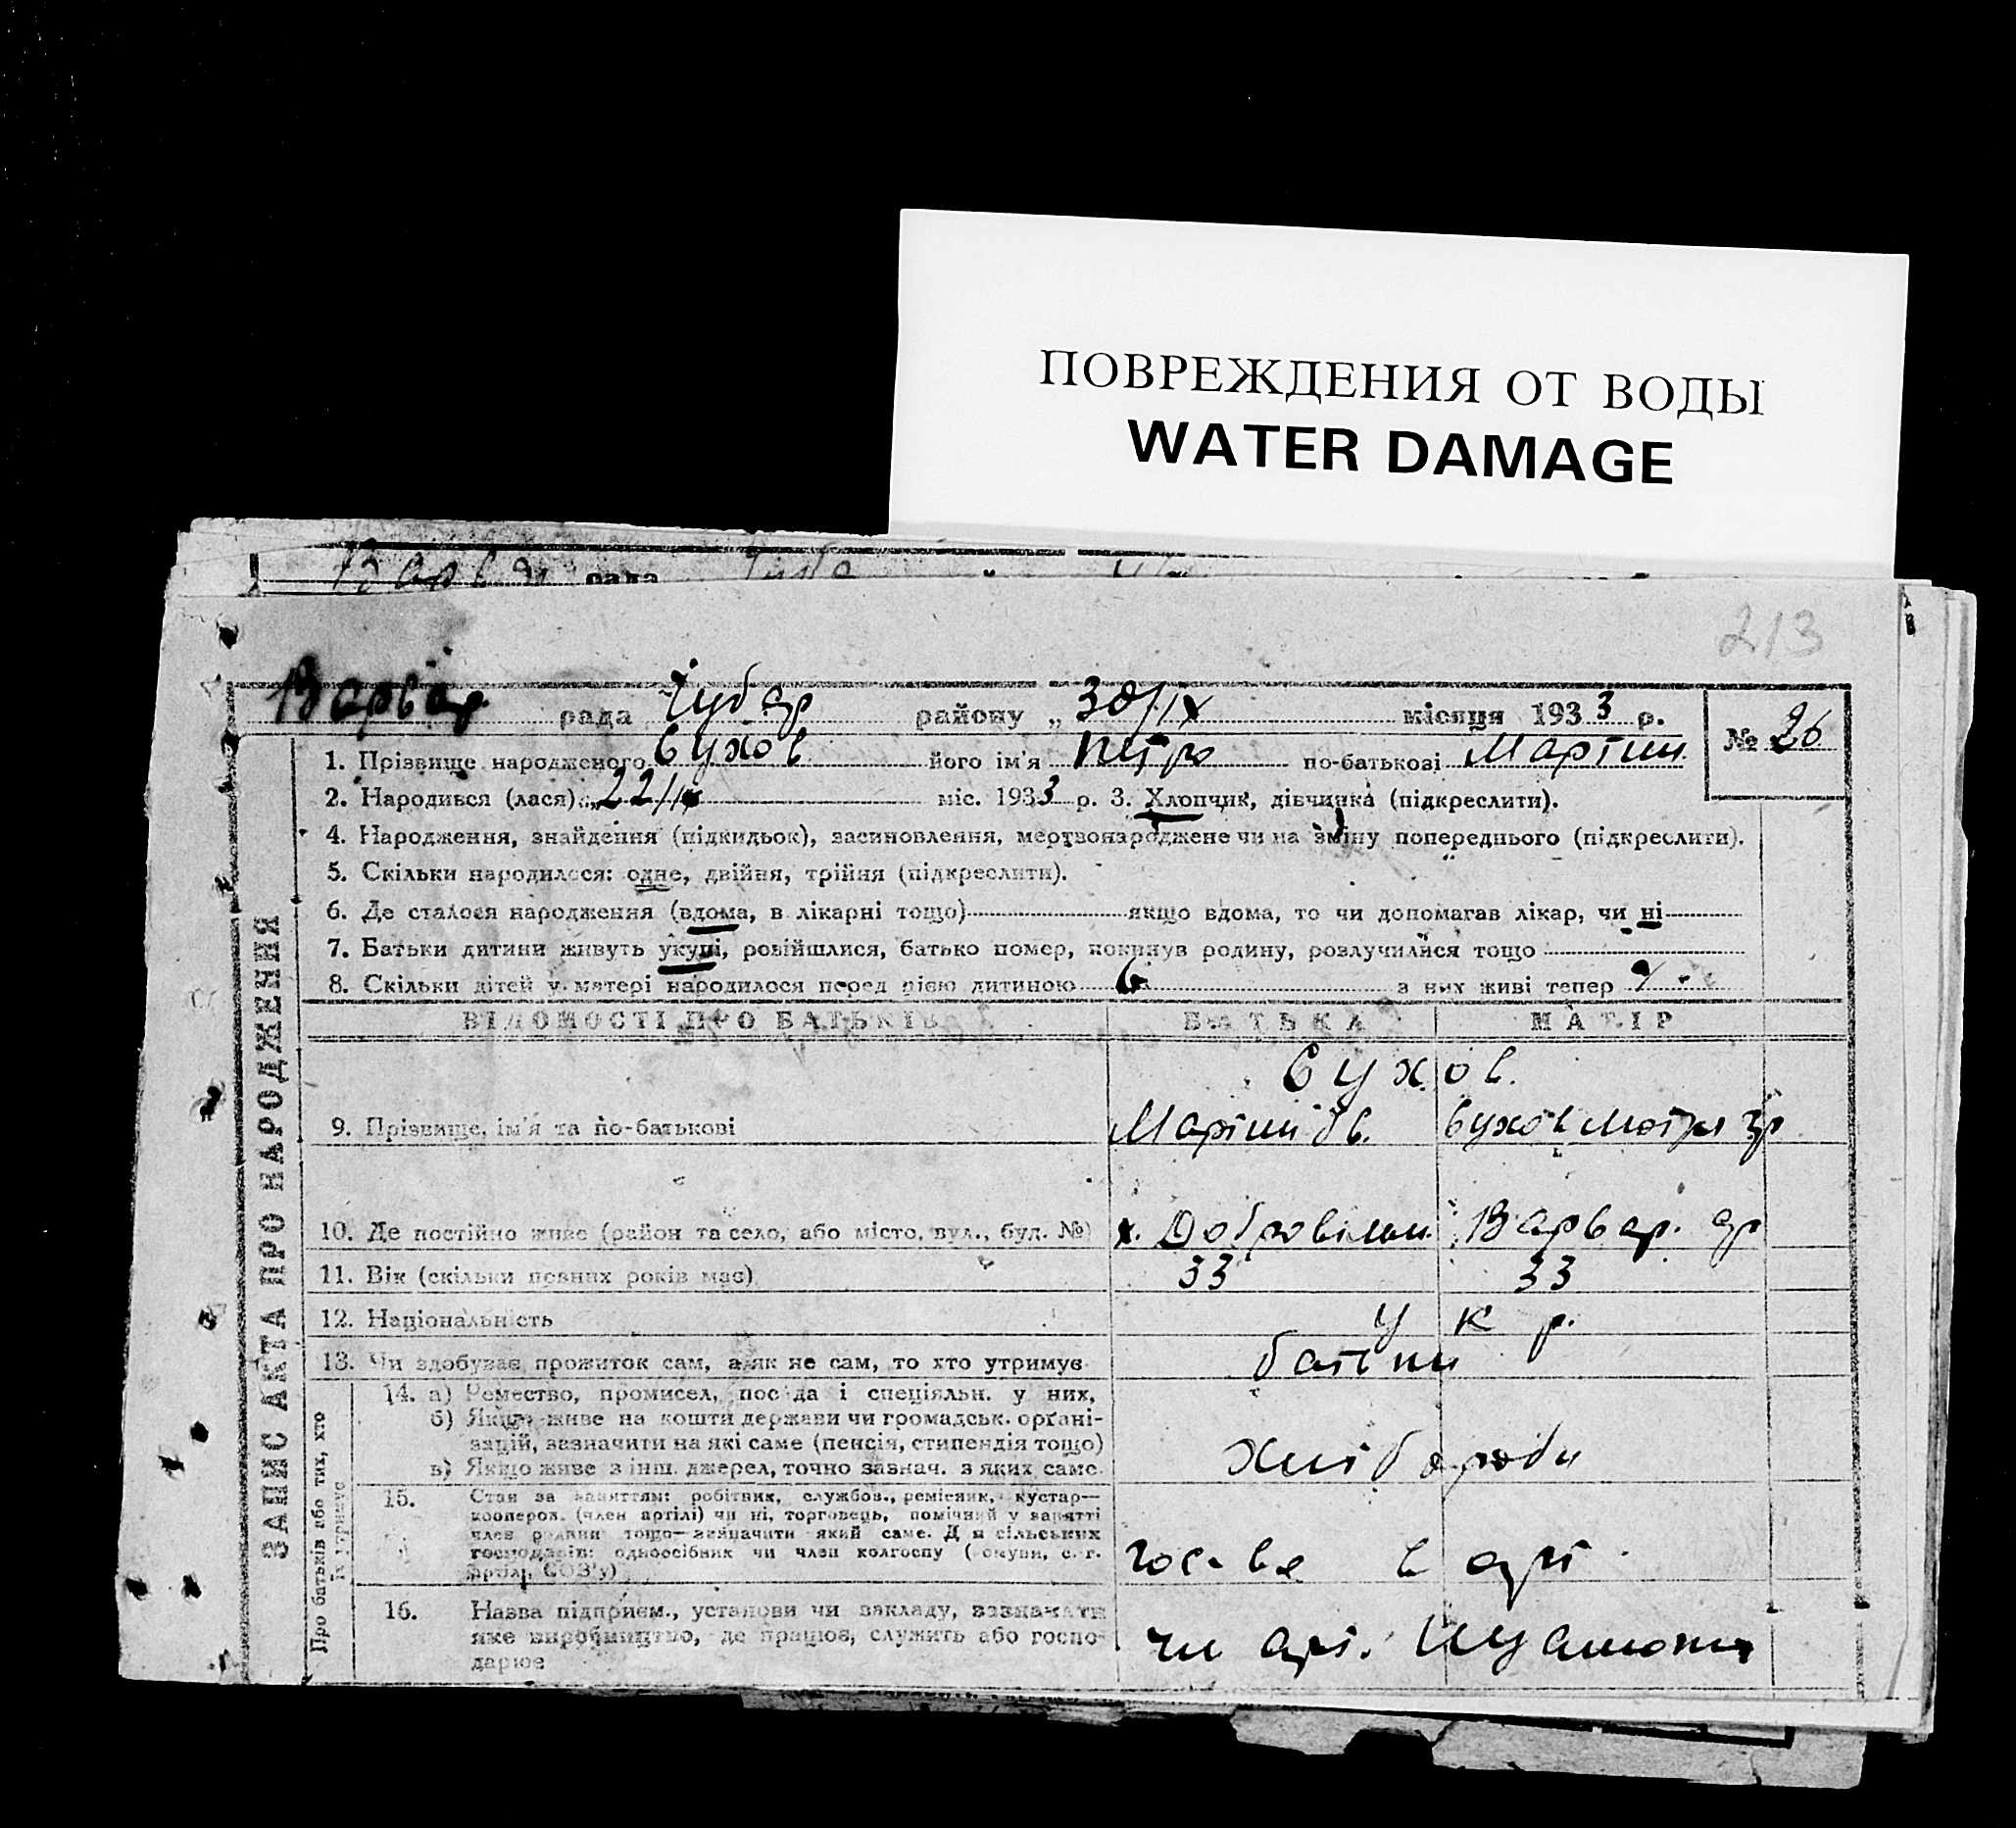 ПОВРЕЖДЕНИЯ ОТ ВОДЫ
WATER DAMAGE
рада
213
Варвар. рада Чубар району „ 30/IX місяця 1933 р.
№ 26
1. Прізвище народженого Сухов його ім'я Петро по-батькові Мартин
2. Народився (лася) „22/IX міс. 1933 р. 3. Хлопчик, дівчинка (підкреслити).
4. Народження, знайдення (підкидьок), засиновлення, мертвонароджене чи на зміну попереднього (підкреслити).
5. Скільки народилося: одне, двійня, трійня (підкреслити).
6. Де сталося народження (вдома, в лікарні тощо) якщо вдома, то чи допомагав лікар, чи ні
7. Батьки дитини живуть укупі, розійшлися, батько помер, покинув родину, розлучилися тощо
8. Скільки дітей у матері народилося перед цією дитиною 6 з них живі тепер
ВІДОМОСТІ ПРО БАТЬКІВ БАТЬКА МАТІР
ЗАПИС АКТА ПРО НАРОДЖЕННЯ
Сухов.
9. Прізвище, ім'я та по-батькові Мартин Сухов Мотря
10. Де постійно живе (район та село, або місто, вул., буд. №) х. Добровільн. Варвар. ср
11. Вік (скільки повних років має) 33 33
12. Національність Укр.
13. Чи здобуває прожиток сам, а як не сам, то хто утримує батьки
Про батьків або тих, хто їх утримує
14. а) Ремество, промисел, посада і спеціяльн. у них,
б) Якщо живе на кошти держави чи громадськ. орґані-
зацій, зазначити на які саме (пенсія, стипендія тощо)
в) Якщо живе з інш. джерел, точно зазнач. з яких саме
Хлібороби
15. Стан за заняттям: робітник, службов., ремісник, кустар—
коопероз. (член артілі) чи ні, торговець, помічний у занятті
член родини тощо—зазначити який саме. Для сільських
господарів: одноосібник чи член колгоспу (комуни, с.-г.
артілі, СОЗ'у)
в арт
16. Назва підприєм., установи чи закладу, зазначати
яке виробництво, де працює, служить або госпо-
дарює
чл арт.